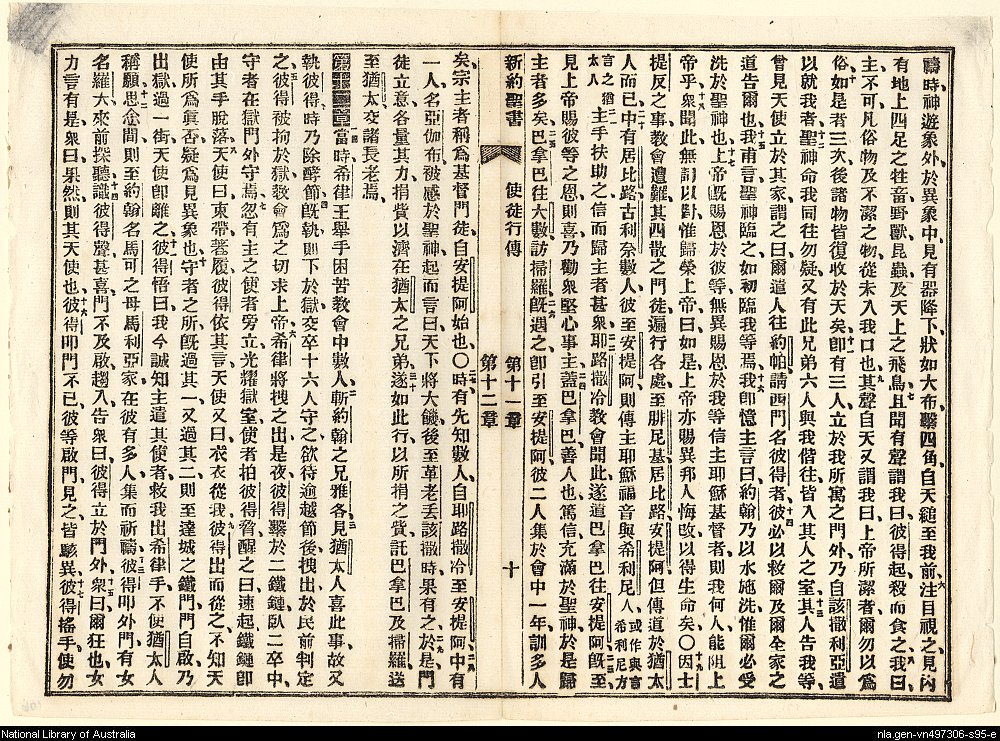 禱時神遊象外於異象中見有器降下狀如大布繫四角自天縋至我前六注目視之見內
有地上四足之牲畜野獸昆蟲及天上之飛鳥七且聞有聲謂我曰彼得起殺而食之八我曰
主不可凡俗物及不潔之物從未入我口也九其聲自天又謂我曰上帝所潔者爾勿以爲
俗十如是者三次後諸物皆復收於天矣十一卽有三人立於我所寓之門外乃自該撒利亞遣
以就我者十二聖神命我同往勿疑又有此兄弟六人與我偕往皆入其人之室十三其人告我等
曾見天使立於其家謂之曰爾遣人往約帕請西門名彼得者十四彼必以救爾及爾全家之
道告爾也十五我甫言聖神臨之如初臨我等焉十六我卽憶主言曰約翰乃以水施洗惟爾必受
洗於聖神也十七上帝旣賜恩於彼等無異賜恩於我等信主耶穌基督者則我何人能阻上
帝乎十八衆聞此無詞以對惟歸榮上帝曰如是上帝亦賜異邦人悔改以得生命矣〇十九因士
提反之事教會遭難其四散之門徒遍行各處至腓尼基居比路安提阿但傳道於猶太
人而已二十中有居比路古利奈數人彼至安提阿則傳主耶穌福音與希利尼人希利尼方或作與言
言之猶太人二一主手扶助之信而歸主者甚衆二二耶路撒冷教會聞此遂遣巴拿巴往安提阿二三旣至
見上帝賜彼等之恩則喜乃勸衆堅心事主二四蓋巴拿巴善人也篤信充滿於聖神於是歸
主者多矣二五巴拿巴往大數訪掃羅二六旣遇之卽引至安提阿彼二人集於會中一年訓多人
新約聖書 使徒行傳 第十一章 第十二章 十
矣宗主者稱爲基督門徒自安提阿始也〇二七時有先知數人自耶路撒冷至安提阿二八中有
一人名亞伽布被感於聖神起而言曰天下將大饑後至革老丟該撒時果有之二九於是門
徒立意各量其力捐貲以濟在猶太之兄弟三十遂如此行以所捐之貲託巴拿巴及掃羅送
至猶太交諸長老焉
第十二章一當時希律王舉手困苦教會中數人二斬約翰之兄雅各三見猶太人喜此事故又
執彼得時乃除酵節四旣執則下於獄交卒十六人守之欲待逾越節後拽出於民前判定
之五彼得被拘於獄教會爲之切求上帝六希律將拽之出是夜彼得繫於二鐵鏈臥二卒中
守者在獄門外守焉七忽有主之使者旁立光耀獄室使者拍彼得脅醒之曰速起鐵鏈卽
由其手脫落八天使曰束帶著履彼得依其言天使又曰衣衣從我九彼得出而從之不知天
使所爲眞否疑爲見異象也十守者之所旣過其一又過其二則至達城之鐵門門自啟乃
出獄過一街天使卽離之十一彼得悟曰我今誠知主遣其使者救我出希律手不使猶太人
稱願十二思念間則至約翰名馬可之母馬利亞家在彼有多人集而祈禱十三彼得叩外門有女
名羅大來前探聽十四識彼得聲甚喜門不及啟趨入告衆曰彼得立於門外十五衆曰爾狂也女
力言有是衆曰果然則其天使也十六彼得叩門不已彼等啟門見之皆駭異十七彼得搖手使勿
National Library of Australia
nla.gen-vn497306-s95-e